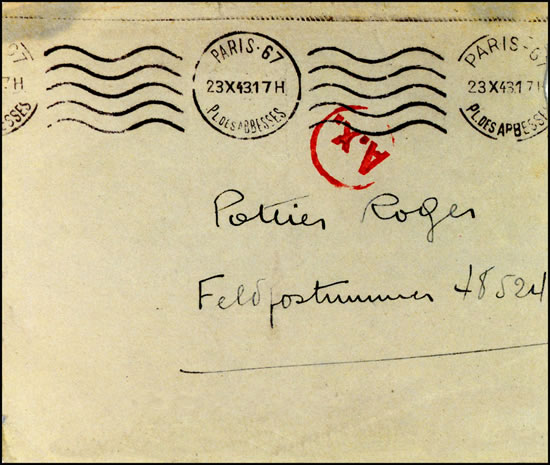 67
7H
ESSES
PARIS-67
23X43.17H
PL.DES ABBESSES
PARIS-67
23X43.17H
PL.DES ABBESSES
A.x.
Pottier Roger
Feldpostnummer 48524